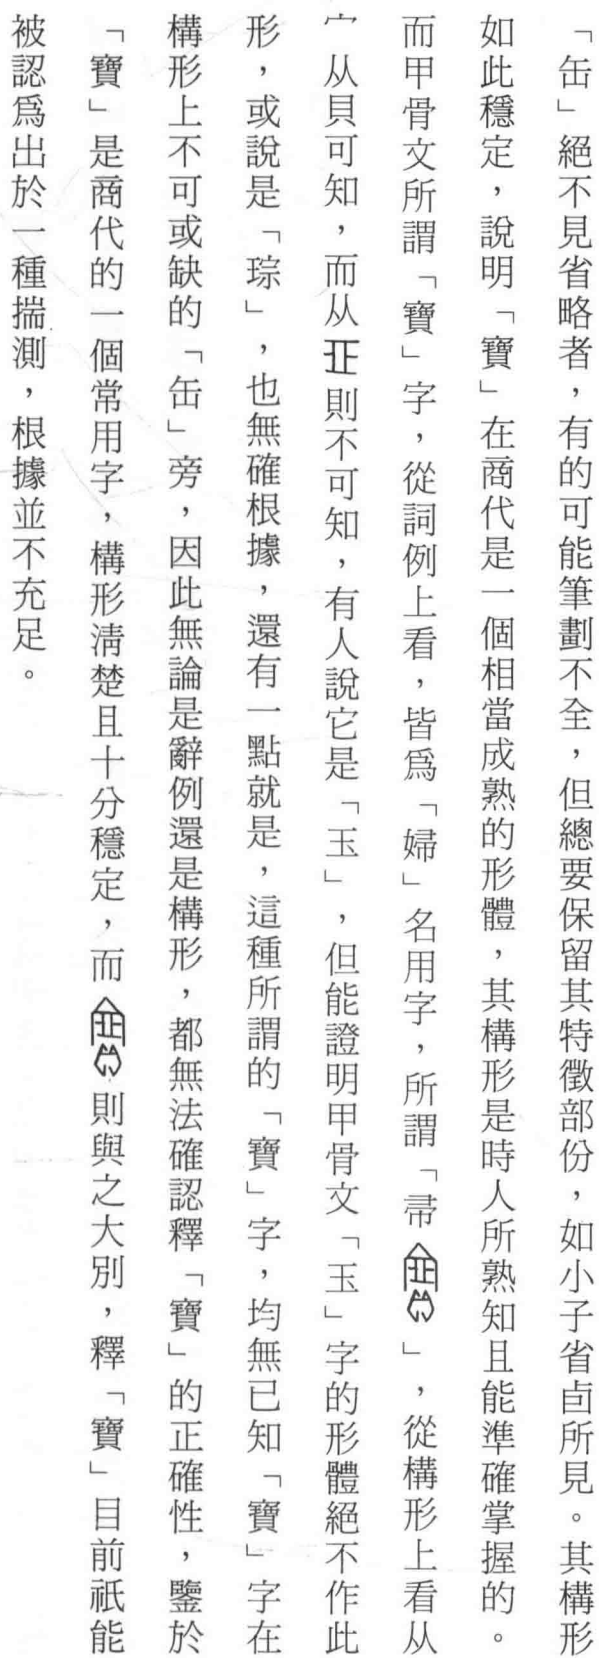 「缶」絕不見省略者，有的可能筆劃不全，但總要保留其特徵部份，如小子省卣所見。其構形
如此穩定，說明「寶」在商代是一個相當成熟的形體，其構形是時人所熟知且能準確掌握的。
而甲骨文所謂「寶」字，從詞例上看，皆爲「婦」名用字，所謂「帚」，從構形上看从
宀从貝可知，而从則不可知，有人說它是「玉」，但能證明甲骨文「玉」字的形體絕不作此
形，或說是「琮」，也無確根據，還有一點就是，這種所謂的「寶」字，均無已知「寶」字在
構形上不可或缺的「缶」旁，因此無論是辭例還是構形，都無法確認釋「寶」的正確性，鑒於
「寶」是商代的一個常用字，構形清楚且十分穩定，而則與之大別，釋「寶」目前祇能
被認爲出於一種揣測，根據並不充足。